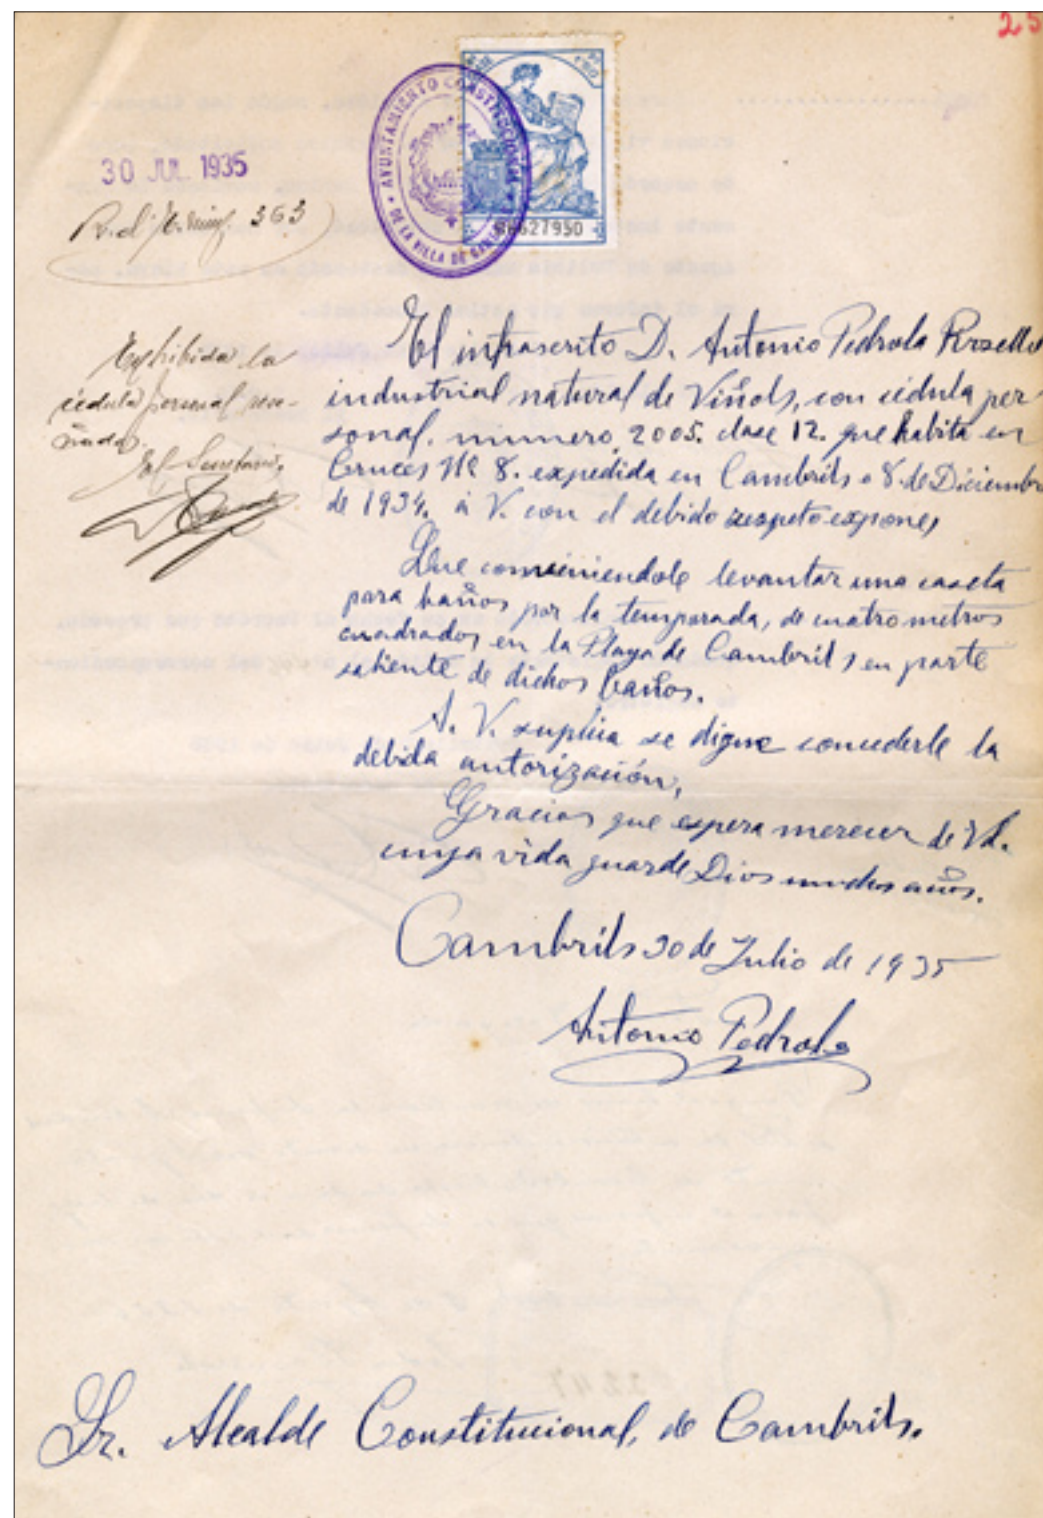 25
30 JUL. 1935
363
AYUNTAMIENTO CONSTITUCIONAL
DE LA VILLA DE
27950
Exhibida la
cédula personal rese-
ñada.
El Secretario,
El infrascrito D. Antonio Pedrola Rosello
industrial natural de Viñols, con cédula per
sonal. número 2005. clase 12. que habita en
Cruces Nº 8. expedida en Cambrils a 8 de Diciembre
de 1934. á V. con el debido respeto expone,
Que conviniendole levantar una caseta
para baños por la temporada, de cuatro metros
cuadrados en la Playa de Cambrils en parte
saliente de dichos baños.
A. V. suplica se digne concederle la
debida autorización,
Gracias que espera merecer de Vd.
cuya vida guarde Dios muchos años.
Cambrils 30 de Julio de 1935
Antonio Pedrola
Sr. Alcalde Constitucional, de Cambrils.